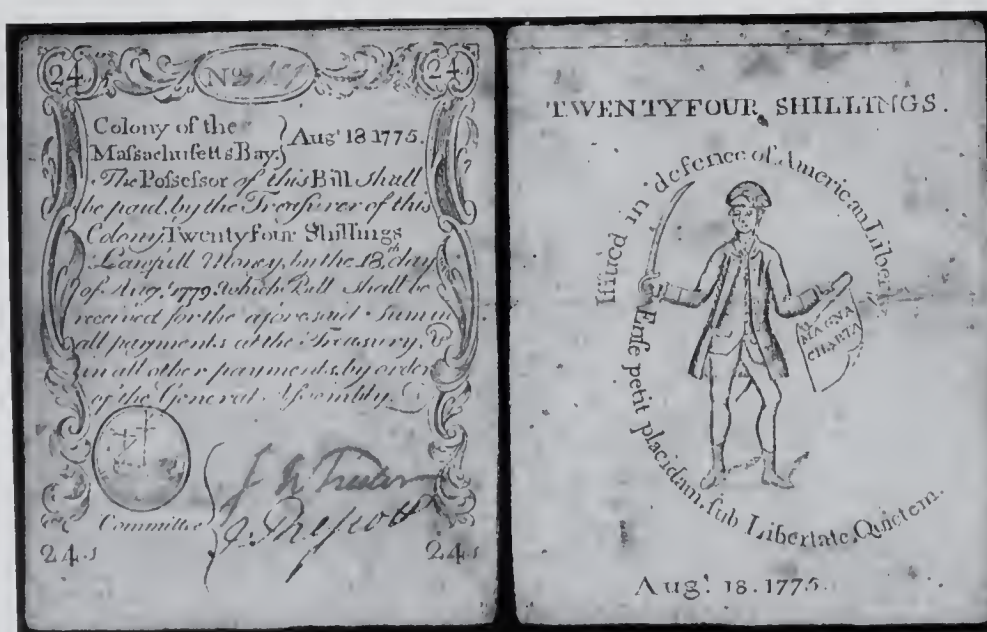 24.s
No
24.s
Colony of the
Maſsachuſetts Bay.
Augt 18 1775.
The Poſseſsor of this Bill shall
be paid, by the Treaſurer of this
Colony, Twenty four Shillings
Lawfull Money, by the 18th day
of Augt. 1779. which Bill shall be
received for the aforesaid Sum in
all payments at the Treasury, &
in all other payments by order
of the General Aſsembly.
Committee
24.s
24.s
TWENTYFOUR SHILLINGS.
Iſsued in defence of American Liberty
Enſe petit placidam, ſub Libertate, Quietem.
MAGNA
CHARTA
Augt. 18. 1775.